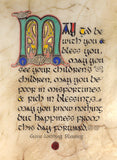 May God be
with you &
bless you,
may you
see your children's
children, may you
be poor in
misfortunes &
rich in blessings.
may you know
nothing but
happiness from
this day forward.